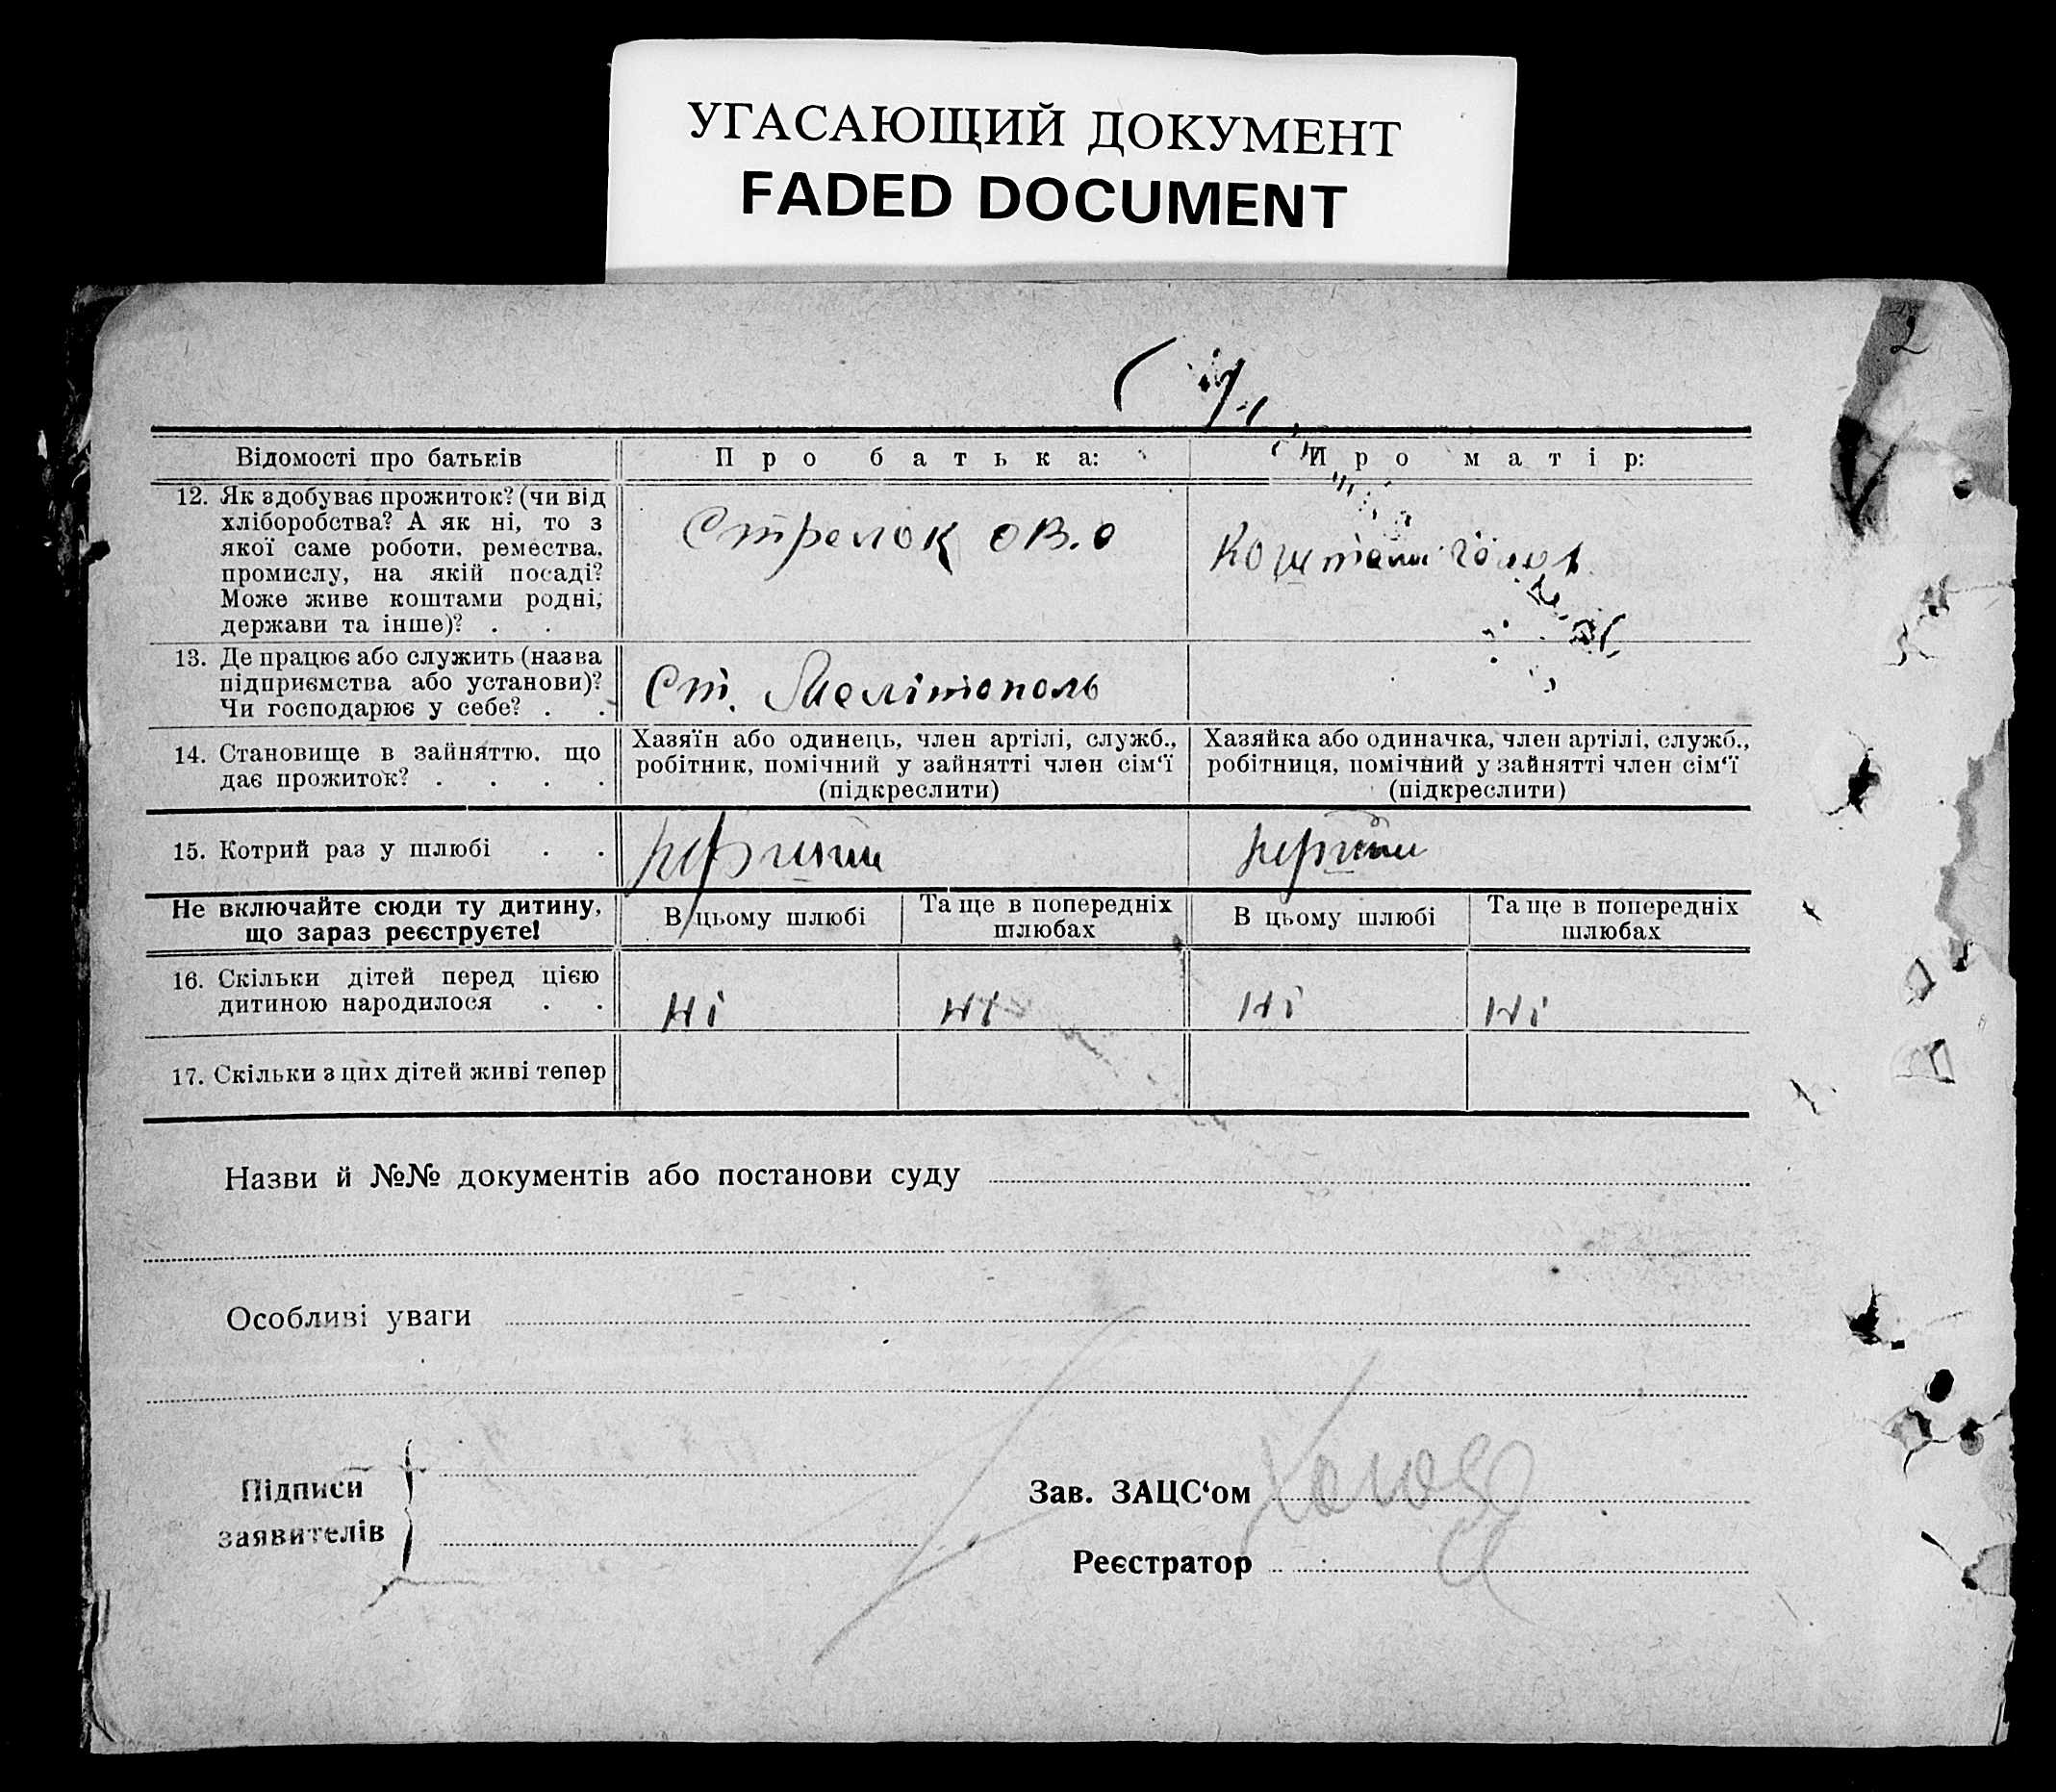 УГАСАЮЩИЙ ДОКУМЕНТ
FADED DOCUMENT
2
Відомості про батьків
Про батька:
Про матір:
12. Як здобуває прожиток? (чи від
хліборобства? А як ні, то з
якої саме роботи, ремества,
промислу, на якій посаді?
Може живе коштами родні,
держави та інше)? . .
Стрелок ОВ.О
Коштами
13. Де працює або служить (назва
підприємства або установи)?
Чи господарює у себе? . .
Ст. Мелітополь
14. Становище в зайняттю, що
дає прожиток? . . . .
Хазяїн або одинець, член артілі, служб.,
робітник, помічний у зайнятті член сім‘ї
(підкреслити)
Хазяйка або одиначка, член артілі, служб.,
робітниця, помічний у зайнятті член сім‘ї
(підкреслити)
15. Котрий раз у шлюбі . .
перший
перший
Не включайте сюди ту дитину,
що зараз реєструєте!
В цьому шлюбі
Та ще в попередніх
шлюбах
В цьому шлюбі
Та ще в попередніх
шлюбах
16. Скільки дітей перед цією
дитиною народилося . .
Ні
Ні
Ні
Ні
17. Скільки з цих дітей живі тепер
Назви й №№ документів або постанови суду
Особливі уваги
Підписи
заявителів
Зав. ЗАЦС‘ом
Реєстратор